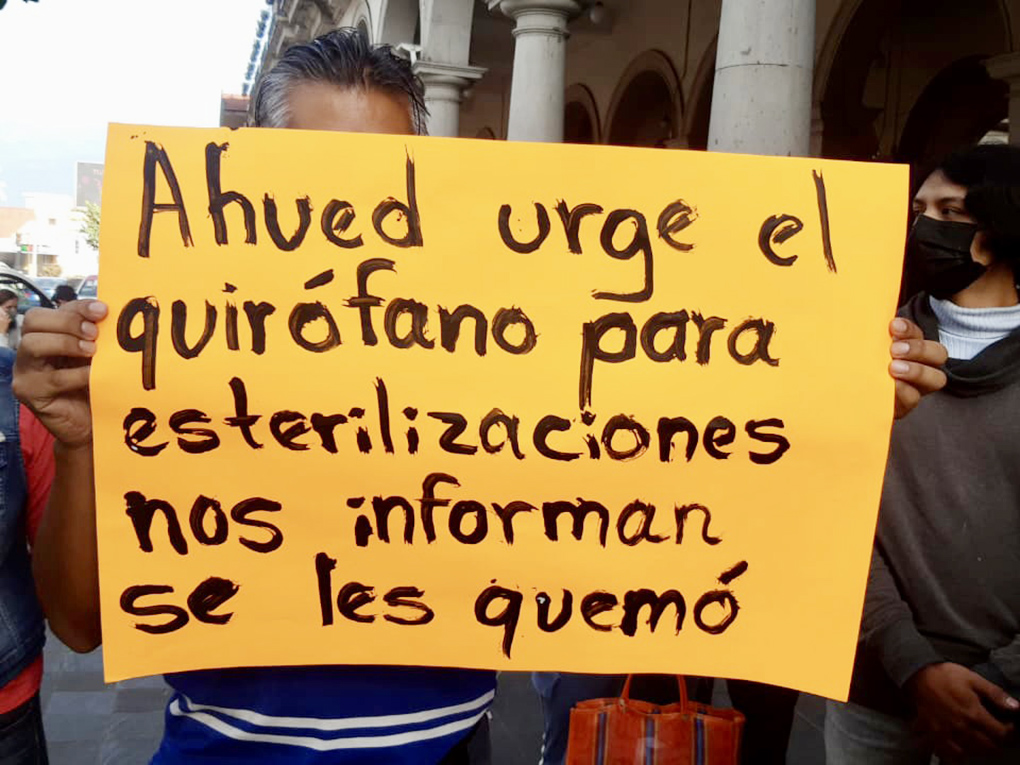 Ahued urge el
quirófano para
esterilizaciones
nos informan
se les quemó